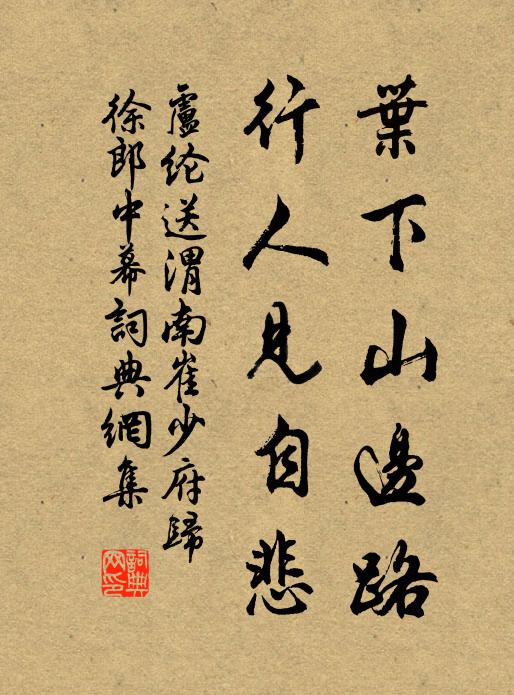 葉下山邊路
行人見自悲
盧纶送渭南崔少府歸
徐郎中幕詞典網集
詞典网印